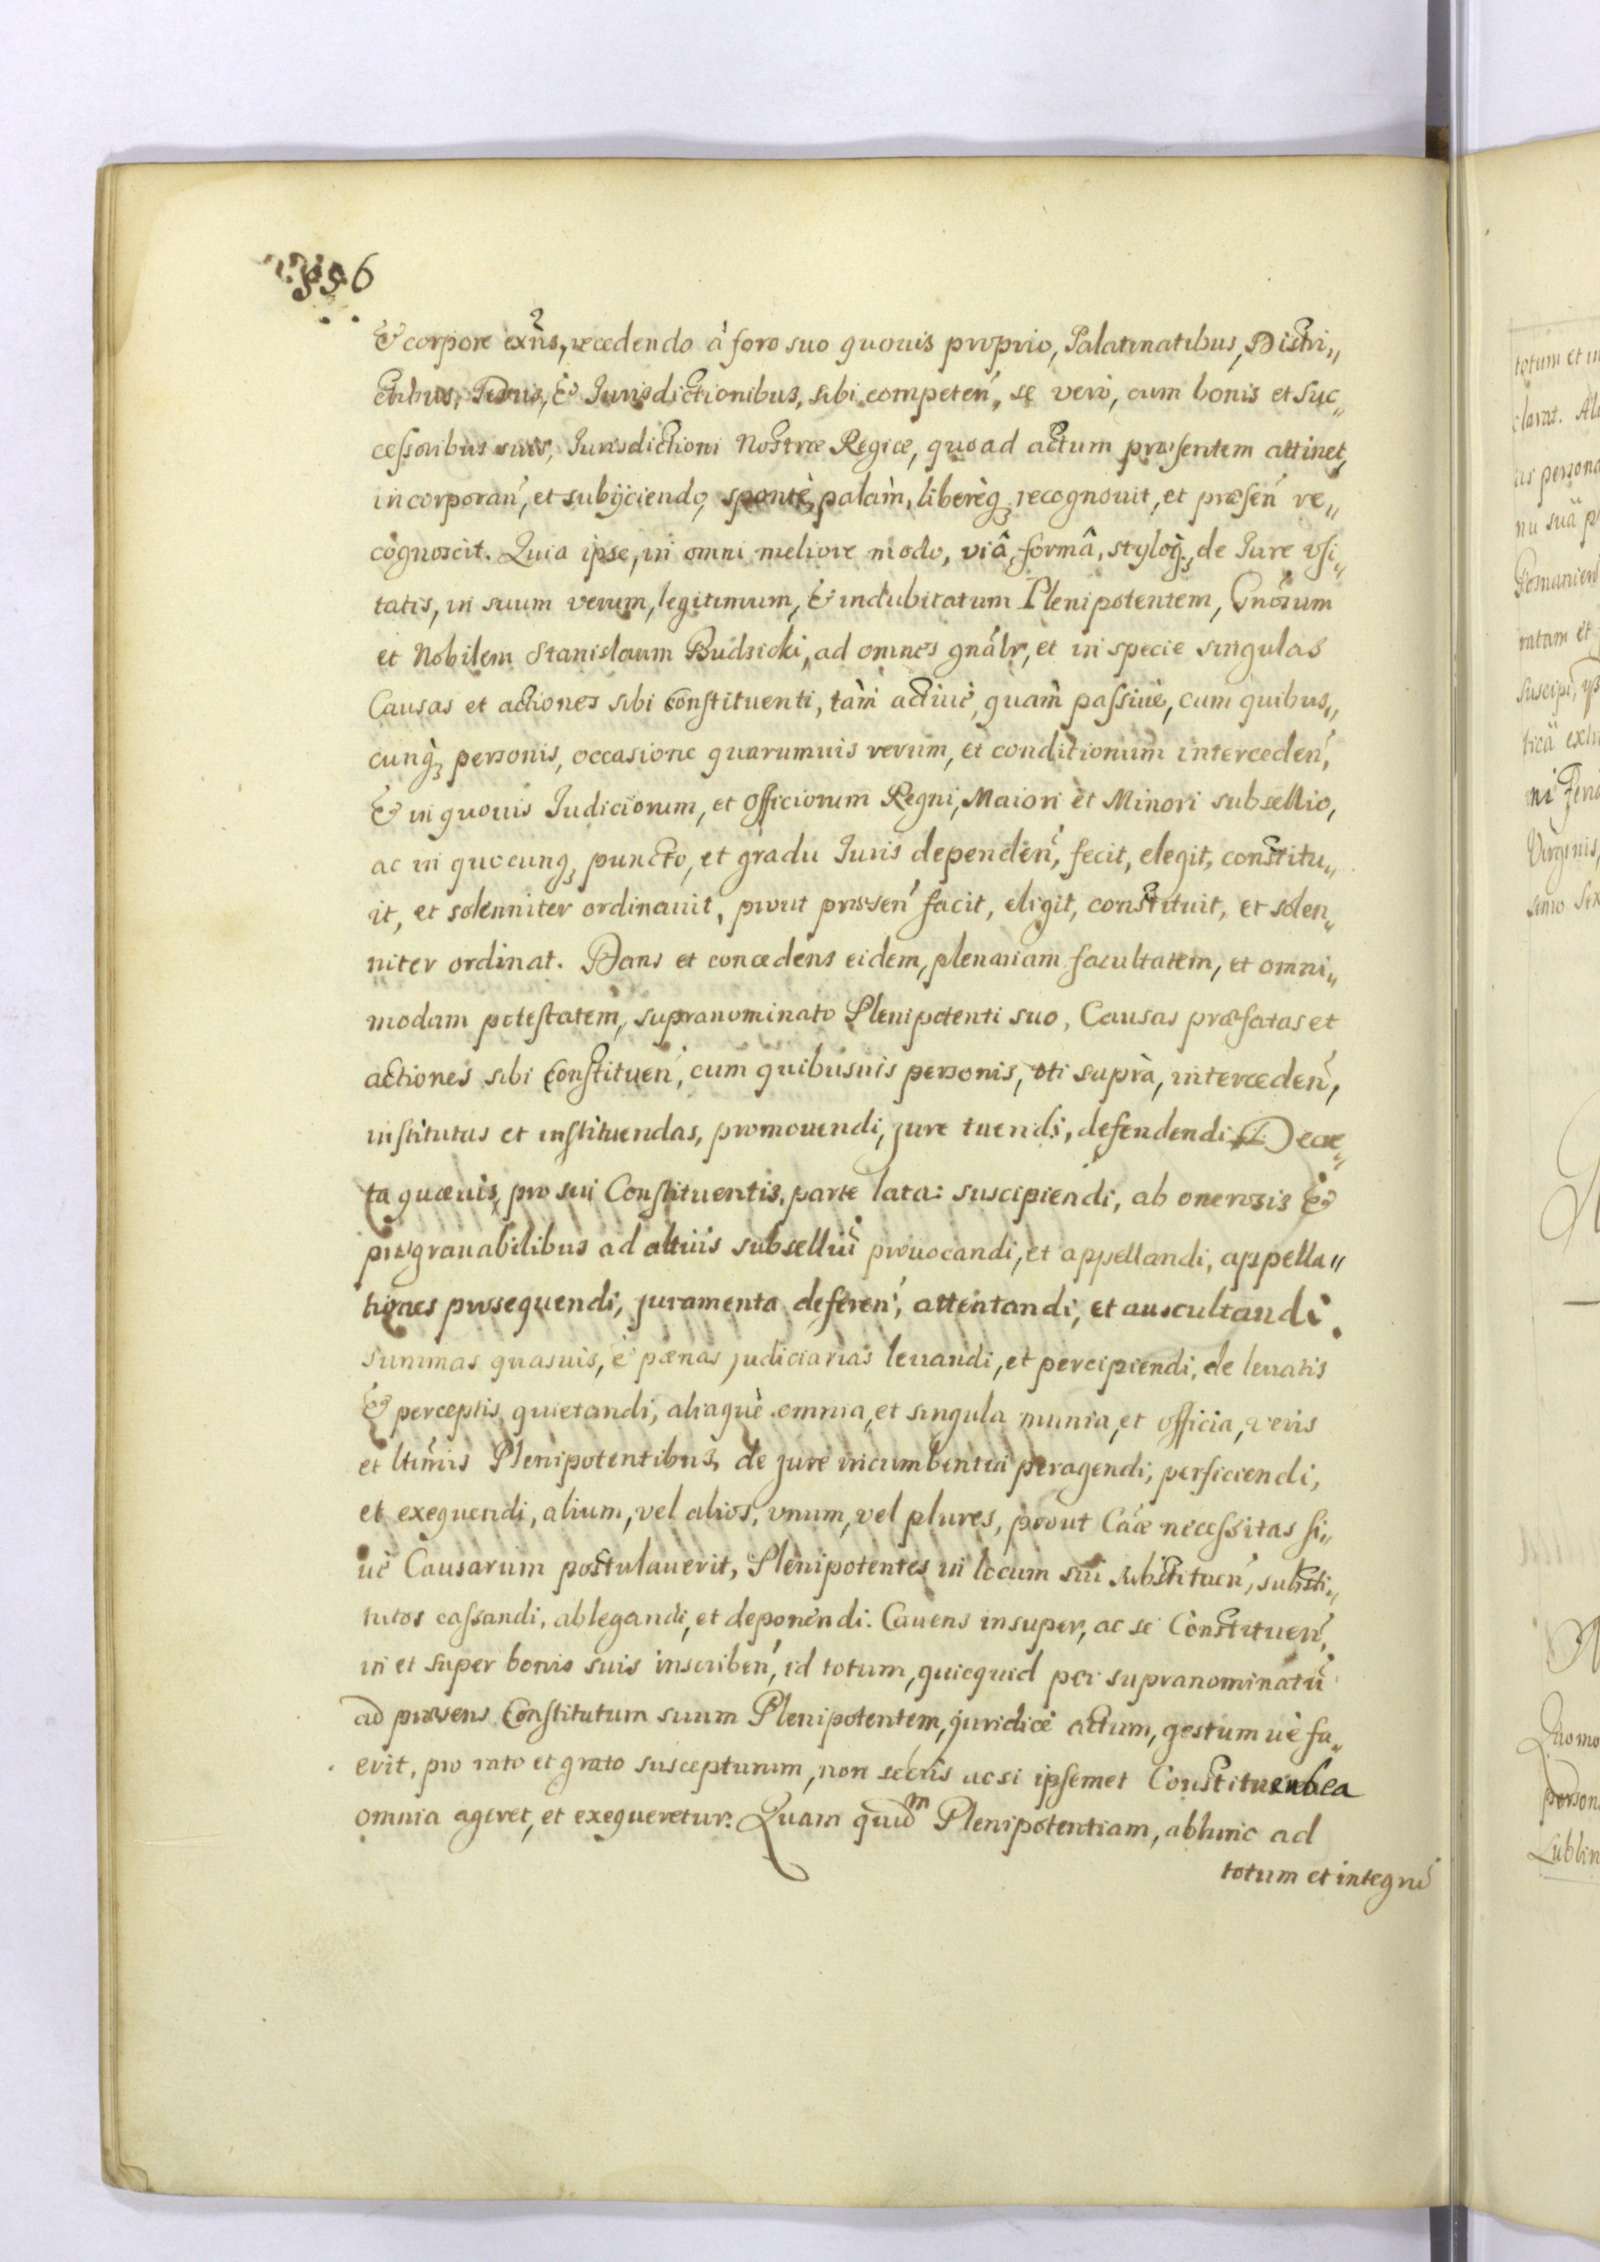 & corpore exñs, recedendo à foro suo quouis proprio, Palatinatibus, Distri„
ctibus, Terris, & Jurisdictionibus, sibi competeń, se verò, cum bonis et Suc„
cessoribus suis, Jurisdictioni Nostræ Regiæ, quoad actum præsentem attinet,
incorporań, et subijciendo, spontè, palàm, liberèq; recognouit, et præseń re„
cognoscit. Quia ipse, in omni meliore modo, viâ, formâ, styloq;, de Jure vsi„
tatis, in suum verum, legitimum, & indubitatum Plenipotentem, Gnõsum
et Nobilem Stanislaum Budzicki, ad omnes gnãlr, et in specie singulas
Causas et actiones sibi Constituenti, tàm actiuè, quàm passiuè, cum quibus„
cunq; personis, occasione quarumuis rerum, et conditionum intercedeń,
& in quouis Judiciorum, et Officiorum Regni, Maiori et Minori subsellio,
ac in quocunq; puncto, et gradu Juris dependeń, fecit, elegit, constitu„
it, et solenniter ordinauit, prout præseń facit, eligit, constituit, et solen„
niter ordinat. Dans et concedens eidem, plenariam facultatem, et omni„
modam potestatem, supranominato Plenipotenti suo, Causas præfatas et
actiones sibi Constitueń, cum quibusuis personis, vti suprà, intercedeń,
institutas et instituendas, promouendi, jure tuendi, defendendi, Decre„
ta quæuis, pro sui Constituentis, parte lata: suscipiendi, ab onerosis &
prægrauabilibus ad altiùs subselliũ prouocandi, et appellandi, appella„
tiones prosequendi, juramenta defereń, attentandi, et auscultandi.
Summas quasuis, è pænas judiciarias leuandi, et percipiendi, de leuatis
& perceptis, quietandi, aliaquè omnia, et singula munia, et officia, veris
et ltimis Plenipotentibus, de jure incumbentia peragendi, perficiendi,
et exequendi, alium, vel alios, vnum, vel plures, prout Cãæ necessitas si„
uè Causarum postulauerit, Plenipotentes in locum sui substitueń, substi„
tutos cassandi, ablegandi, et deponendi. Cauens insuper, ac se Constitueń,
in et super bonis suis inscribeń, id totum, quicquid per supranominatũ
ad præsens Constitutum suum Plenipotentem, juridicè actum, gestum uè fu„
erit, pro rato et grato suscepturum, non secus ac si ipsemet Constituens ea
omnia ageret, et exequeretur. Quam quidm Plenipotentiam, abhinc ad
totum et integrũ